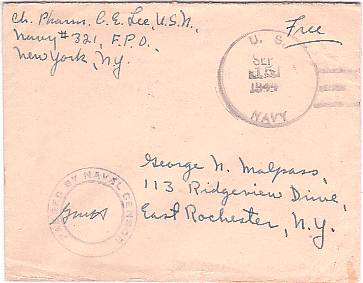 Ch. Pharm. C. E. Lee, U.S.N.
Navy # 321, F.P.O.
New York, N.Y.
Free
U. S.
SEP
1944
NAVY
PASSED BY NAVAL CENSOR
George N. Malpass,
113 Ridgeview Drive,
East Rochester, N.Y.